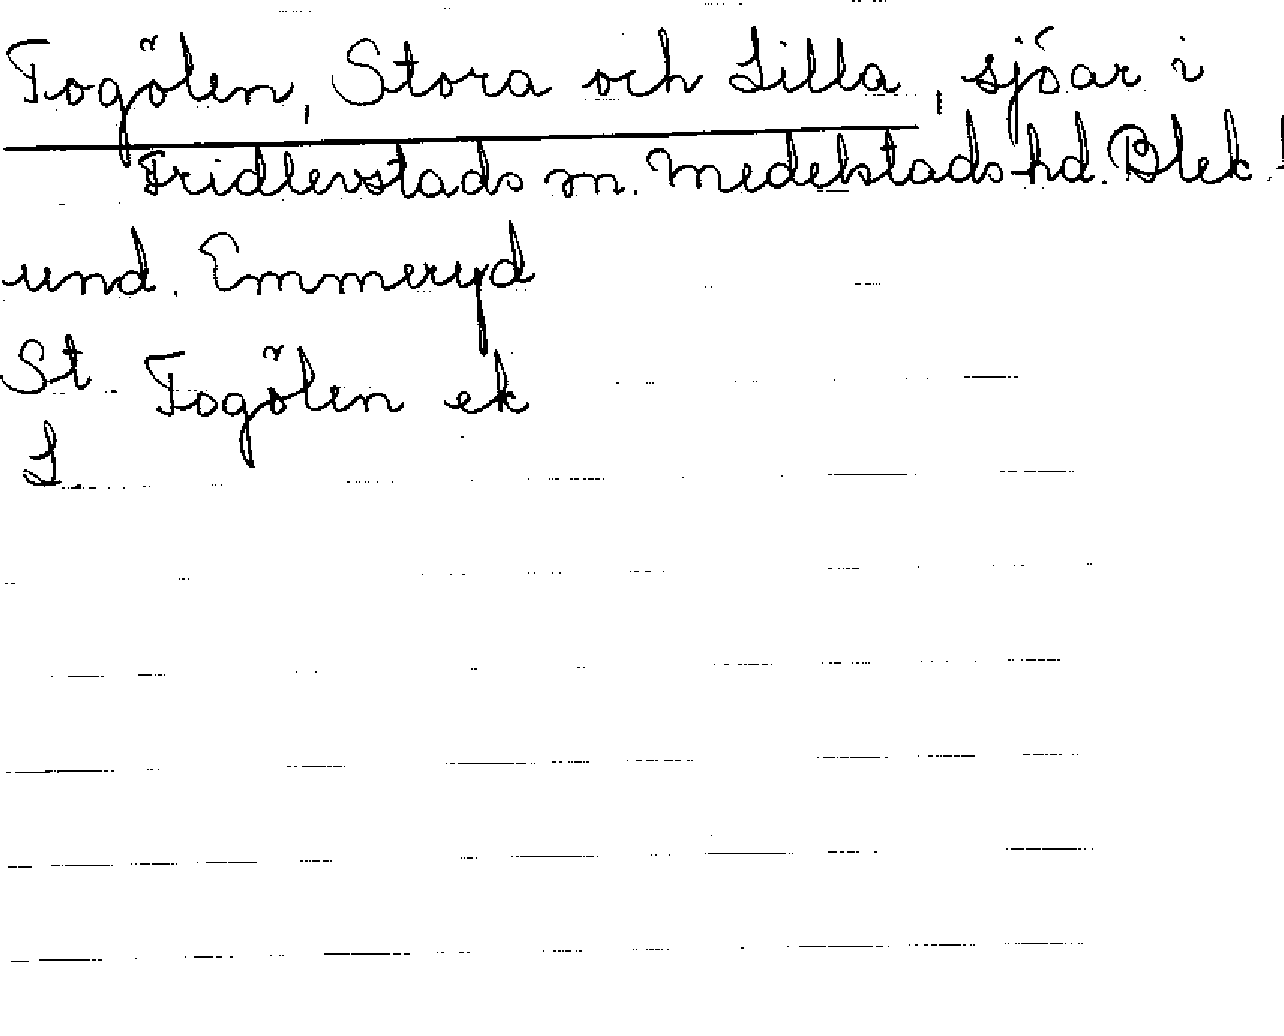 Togölen, Stora och Lilla, sjöar i
Fridlevstads sn. Medelstads hd. Blek. l
und. Emmeryd
St. Togölen ek
L.